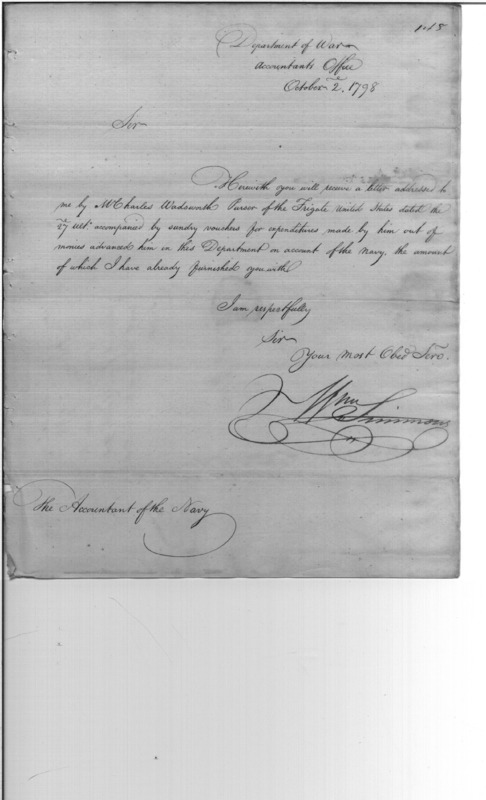 Department of War
Accountants Office
October 2, 1798
Sir
Herewith you will receive a letter addressed to
me by Mr Charles Wadsworth Purser of the Frigate United States dated the
27 ulto accompanied by sundry vouchers for expenditures made by him out of
monies advanced him in this Department on account of the Navy, the amount
of which I have already furnished you with
I am respectfully
Sir
Your Most Obed Serv.
Wm Simmons
The Accountant of the Navy